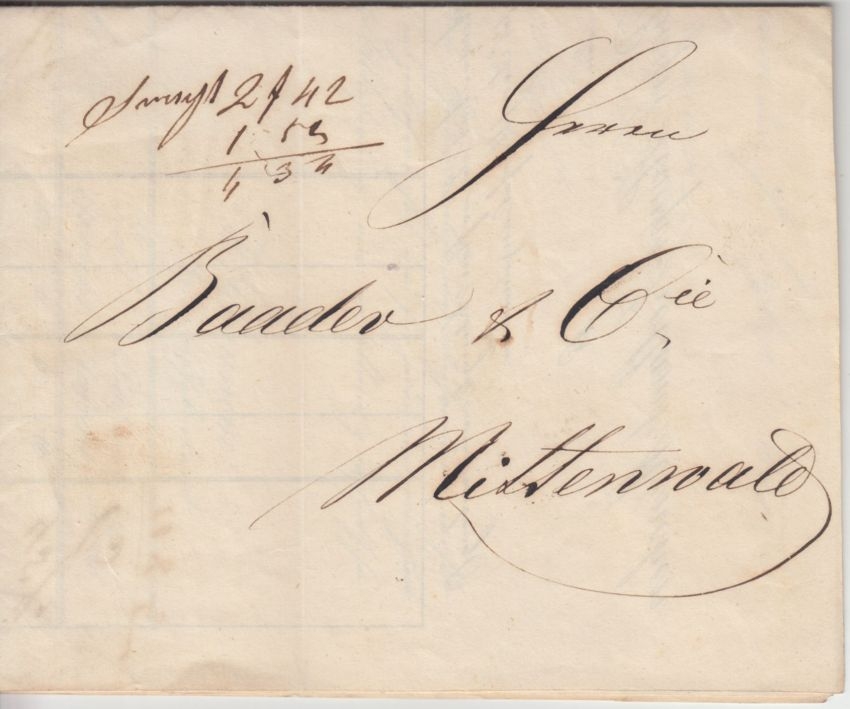 2 f 42
1 52
4 34
Herrn
Baader & Cie
Mittenwald